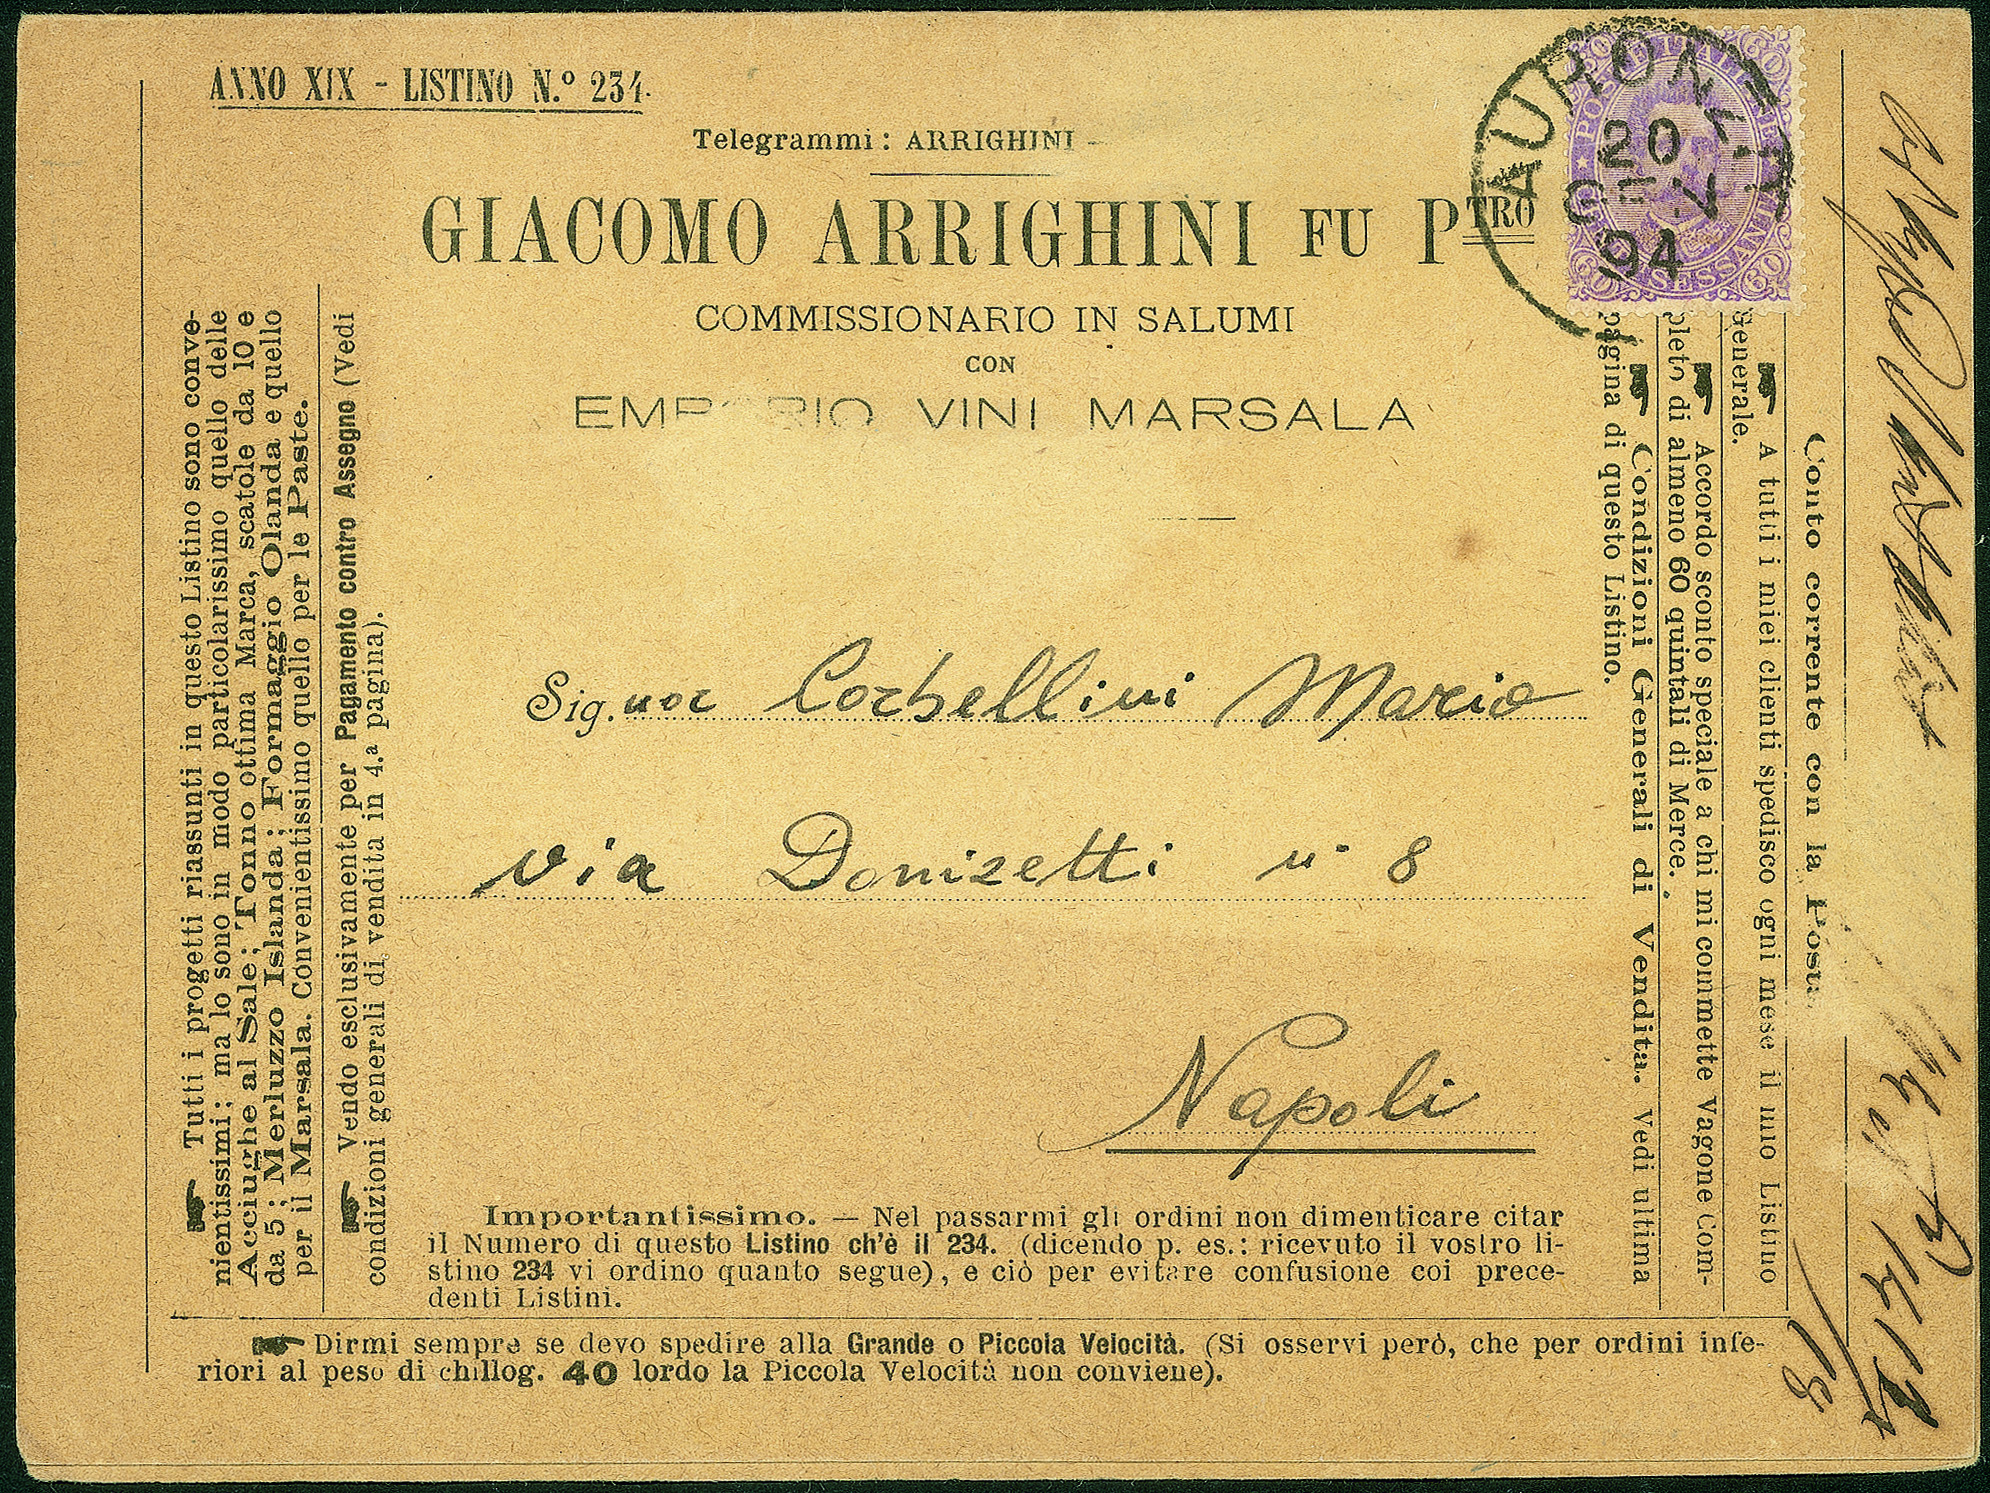 ANNO XIX - LISTINO N.º 234.
Telegrammi: ARRIGHINI
GIACOMO ARRIGHINI FU PTRO
COMMISSIONARIO IN SALUMI
CON
EMPORIO VINI MARSALA
POSTE ITALIANE
SESSANTA
60 60
60 60
AURONZO
20
94
Sig.nor Corbellini Mario
via Donizetti n. 8
Napoli
Tutti i progetti riassunti in questo Listino sono conve-
nientissimi; ma lo sono in modo particolarissimo quello delle
Acciughe al Sale; Tonno ottima Marca, scatole da 10 e
da 5; Merluzzo Islanda; Formaggio Olanda e quello
per il Marsala. Convenientissimo quello per le Paste.
Vendo esclusivamente per Pagamento contro Assegno (Vedi
condizioni generali di vendita in 4.ª pagina).
Conto corrente con la Posta
A tutti i miei clienti spedisco ogni mese il mio Listino
Generale.
Accordo sconto speciale a chi mi commette Vagone Com-
pleto di almeno 60 quintali di Merce.
Condizioni Generali di Vendita. Vedi ultima
pagina di questo Listino.
Importantissimo. — Nel passarmi gli ordini non dimenticare citar
il Numero di questo Listino ch'è il 234. (dicendo p. es.: ricevuto il vostro li-
stino 234 vi ordino quanto segue), e ciò per evitare confusione coi prece-
denti Listini.
Dirmi sempre se devo spedire alla Grande o Piccola Velocità. (Si osservi però, che per ordini infe-
riori al peso di chillog. 40 lordo la Piccola Velocità non conviene).